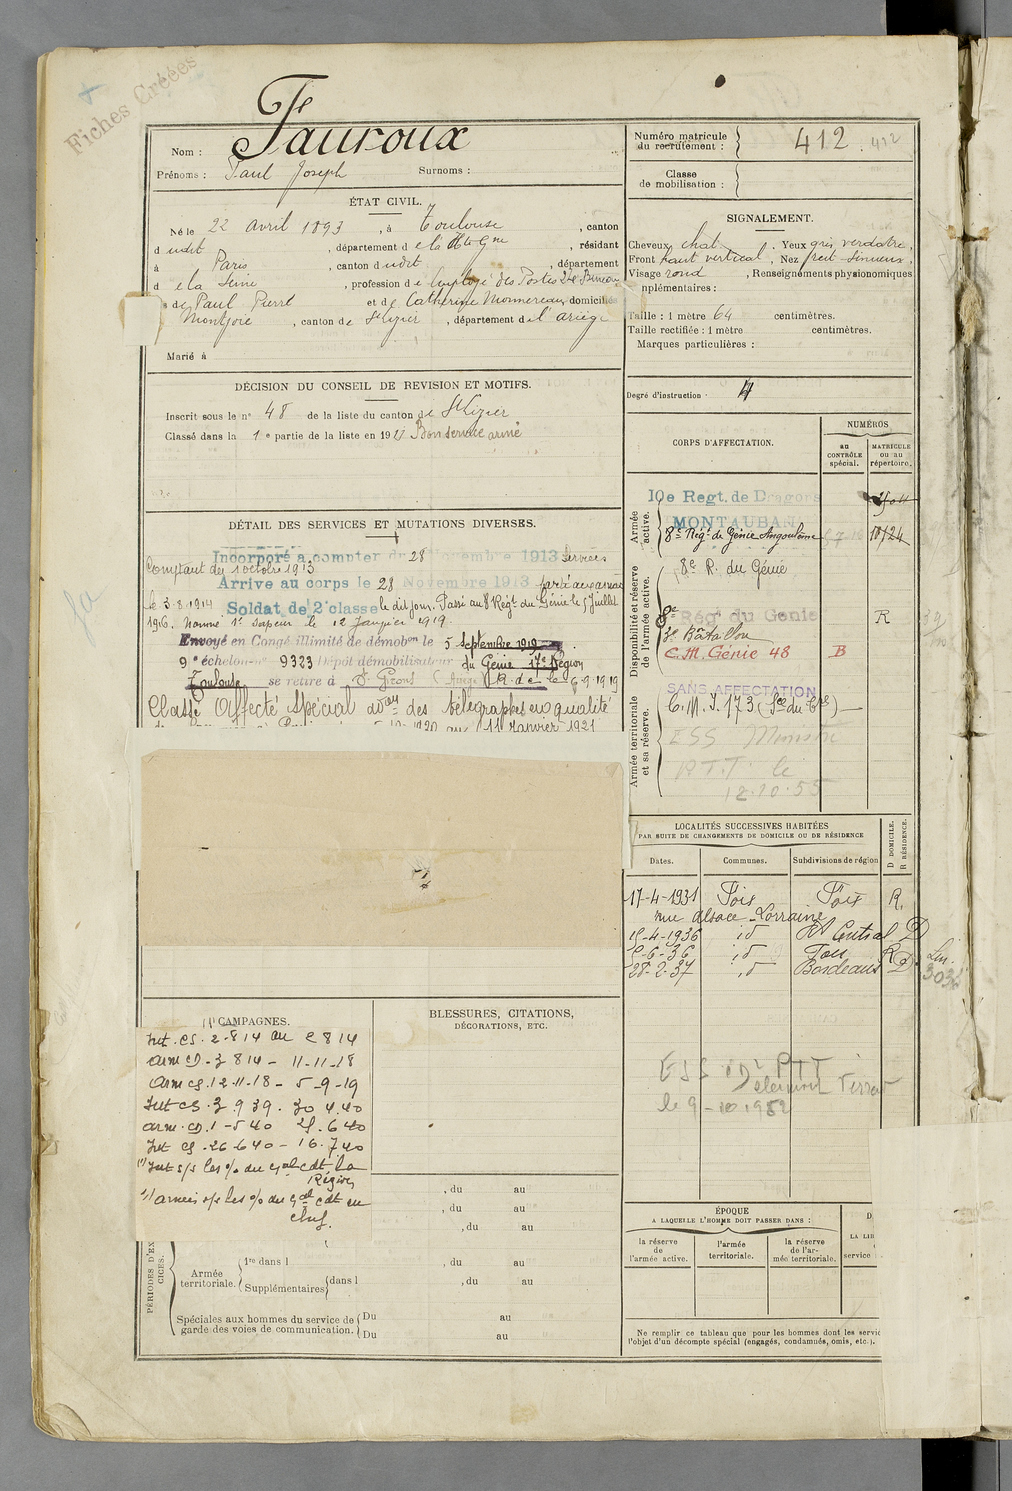 Fiches Créées
Nom : Fauroux
Prénoms : Paul Joseph Surnoms :
Numéro matricule du recrutement : 412 . 412
Classe de mobilisation :
ÉTAT CIVIL.
Né le 22 avril 1893, à Toulouse, canton
dudit, département de la Hte Gne, résidant
à Paris, canton dudit, département
de la Seine, profession d'employé des Postes
de Paul Pierre et de Catherine Monnereau, domiciliés
Montjoie, canton de St Lizier, département de l'ariège
Marié à
SIGNALEMENT.
Cheveux chat. Yeux gris verdatre,
Front haut vertical, Nez rect. sinueux,
Visage rond, Renseignements physionomiques
mplémentaires :
Taille : 1 mètre 64 centimètres.
Taille rectifiée : 1 mètre centimètres.
Marques particulières :
Degré d'instruction
DÉCISION DU CONSEIL DE REVISION ET MOTIFS.
Inscrit sous le no 48 de la liste du canton de St Lizier
Classé dans la 1e partie de la liste en 191 Bon service armé
CORPS D'AFFECTATION.
NUMÉROS
au CONTRÔLE spécial.
MATRICULE ou au répertoire.
Armée active.
10e Regt. de Dragons
MONTAUBAN
8e Régt de Génie Angoulême 18124
Disponibilité et réserve de l'armée active.
8e R. du Génie
8e Régt du Genie R
3e Bataillon
C.M. Génie 48 B
Armée territoriale et sa réserve.
SANS AFFECTATION
C.M.I. 173
ESS
P.T.T. le
12.10.55
DÉTAIL DES SERVICES ET MUTATIONS DIVERSES.
Incorporé a compter du 28 Novembre 1913 Services
Comptant du 1 octobre 1913
Arrive au corps le 28 Novembre 1913
le 3.8.1914 Soldat de 2e classe le dit jour. Passé au 8 Régt du Génie le 5 juillet
1916. Nommé 1e sapeur le 12 Janvier 1919.
Envoyé en Congé illimité de démobon le 5 septembre 1919
9e échelon no 9323 Dépot démobilisateur du Génie 17e Région
Toulouse se retire à St Girons (Ariège) 6.9.1919
Classé Affecté Spécial des télégraphes en qualité
11 Janvier 1921
LOCALITÉS SUCCESSIVES HABITÉES
PAR SUITE DE CHANGEMENTS DE DOMICILE OU DE RÉSIDENCE
Dates. Communes. Subdivisions de région
D DOMICILE. R RÉSIDENCE.
17-4-1931 Foix Foix R.
rue Alsace-Lorraine
15-4-1936 id Central D
5-6-36 id
28-2-37 id Bordeaux D.
3036
ESS PTT
le 9-10.1952
CAMPAGNES.
Int. CS. 2-8 14 au 2 8 14
arm CD - 3 8 14 - 11-11-18
Arm CS. 12-11-18 - 5-9-19
Int CS. 3.9 39. 30 4.40
arm. CD. 1-5 40 25.6 40
Int CS. 26-6 40 - 16.7 40
Int s/s les o/o du Gal cdt la
Région
armées s/s les o/o du Gal cdt en
chef.
BLESSURES, CITATIONS,
DÉCORATIONS, ETC.
, du au
, du au
, du au
PÉRIODES D'EX CICES.
Armée territoriale.
1re dans l , du au
Supplémentaires dans l , du au
Spéciales aux hommes du service de garde des voies de communication.
Du au
Du au
ÉPOQUE
A LAQUELLE L'HOMME DOIT PASSER DANS :
la réserve de l'armée active.
l'armée territoriale.
la réserve de l'armée territoriale.
D.
LA LIB
service
Ne remplir ce tableau que pour les hommes dont les servic
l'objet d'un décompte spécial (engagés, condamnés, omis, etc.).